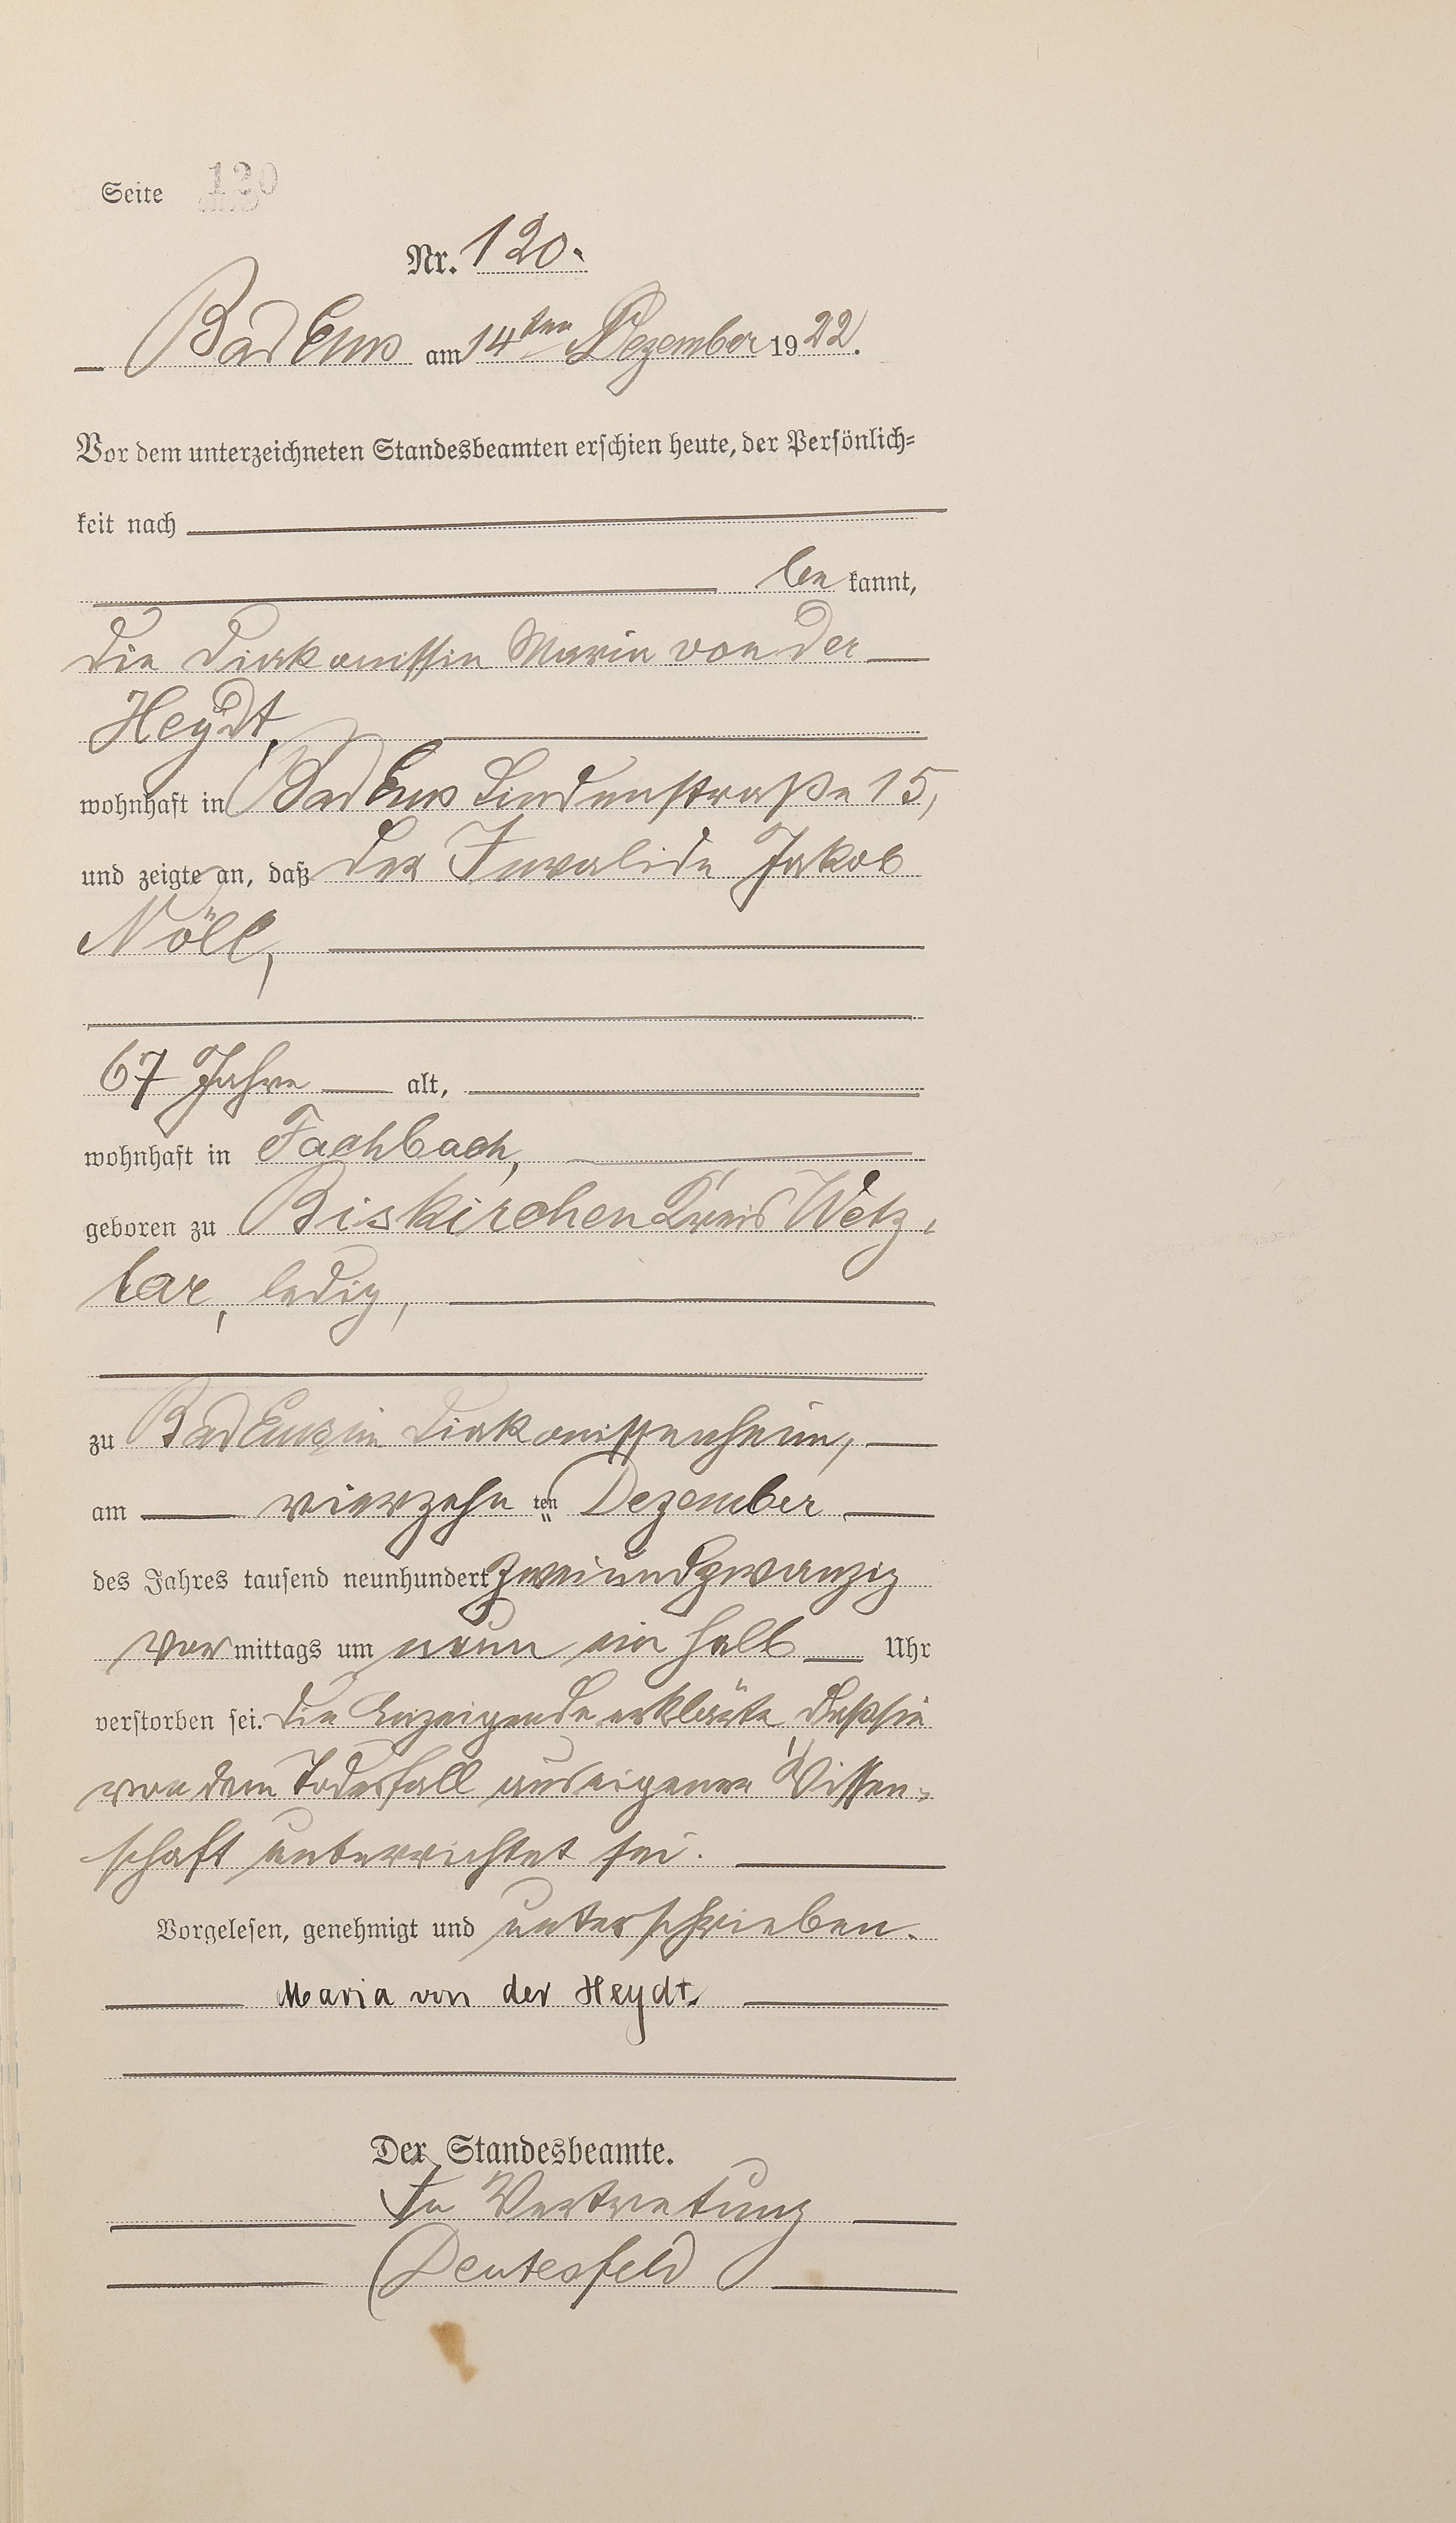 Seite 120
Nr. 120.
Bad Ems am 14ten Dezember 1922.
Vor dem unterzeichneten Standesbeamten erschien heute, der Persönlich=
keit nach
be kannt,
die Diakonissin Maria von der
Heydt,
wohnhaft in Bad Ems Lindenstraße 15,
und zeigte an, daß der Invalide Jakob
Nöll,
67 Jahre alt,
wohnhaft in Fachbach,
geboren zu Biskirchen Kreis Wetz-
lar, ledig,
zu Bad Ems im Diakonissenheim,
am vierzehn ten Dezember
des Jahres tausend neunhundert zweiundzwanzig
vor mittags um neun ein halb Uhr
verstorben sei. Die Anzeigende erklärte, daß sie
von dem Todesfall aus eigener Wissen-
schaft unterrichtet sei.
Vorgelesen, genehmigt und unterschrieben.
Maria von der Heydt.
Der Standesbeamte.
In Vertretung
Deutesfeld